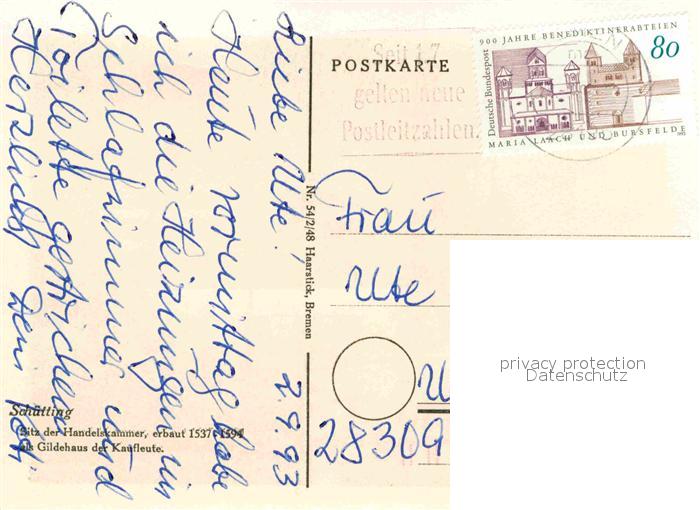 Liebe Ute!
2.9.93
Heute vormittag habe
ich die Heizungen im
Schlafzimmer und
Toilette gestrichen.
Herzlichst Dein
Schütting
Sitz der Handelskammer, erbaut 1537-1594
als Gildehaus der Kaufleute.
Nr. 54/2/48 Haarstick, Bremen
POSTKARTE
Seit 1.7.
gelten neue
Postleitzahlen
900 JAHRE BENEDIKTINERABTEIEN
80
Deutsche Bundespost
MARIA LAACH UND BURSFELDE
1993
Frau
Ute
28309
privacy protection
Datenschutz